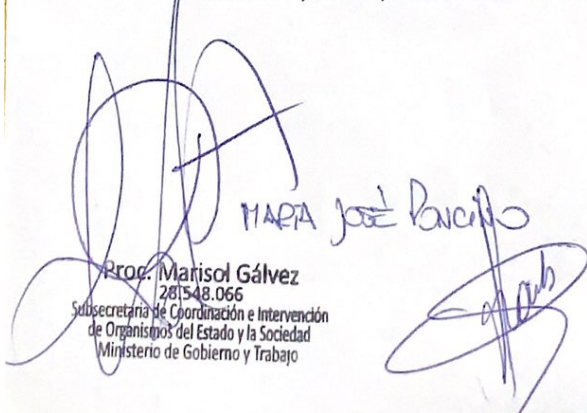 MARÍA JOSÉ PONCIÑO
Proc. Marisol Gálvez
28.548.066
Subsecretaria de Coordinación e Intervención
de Organismos del Estado y la Sociedad
Ministerio de Gobierno y Trabajo